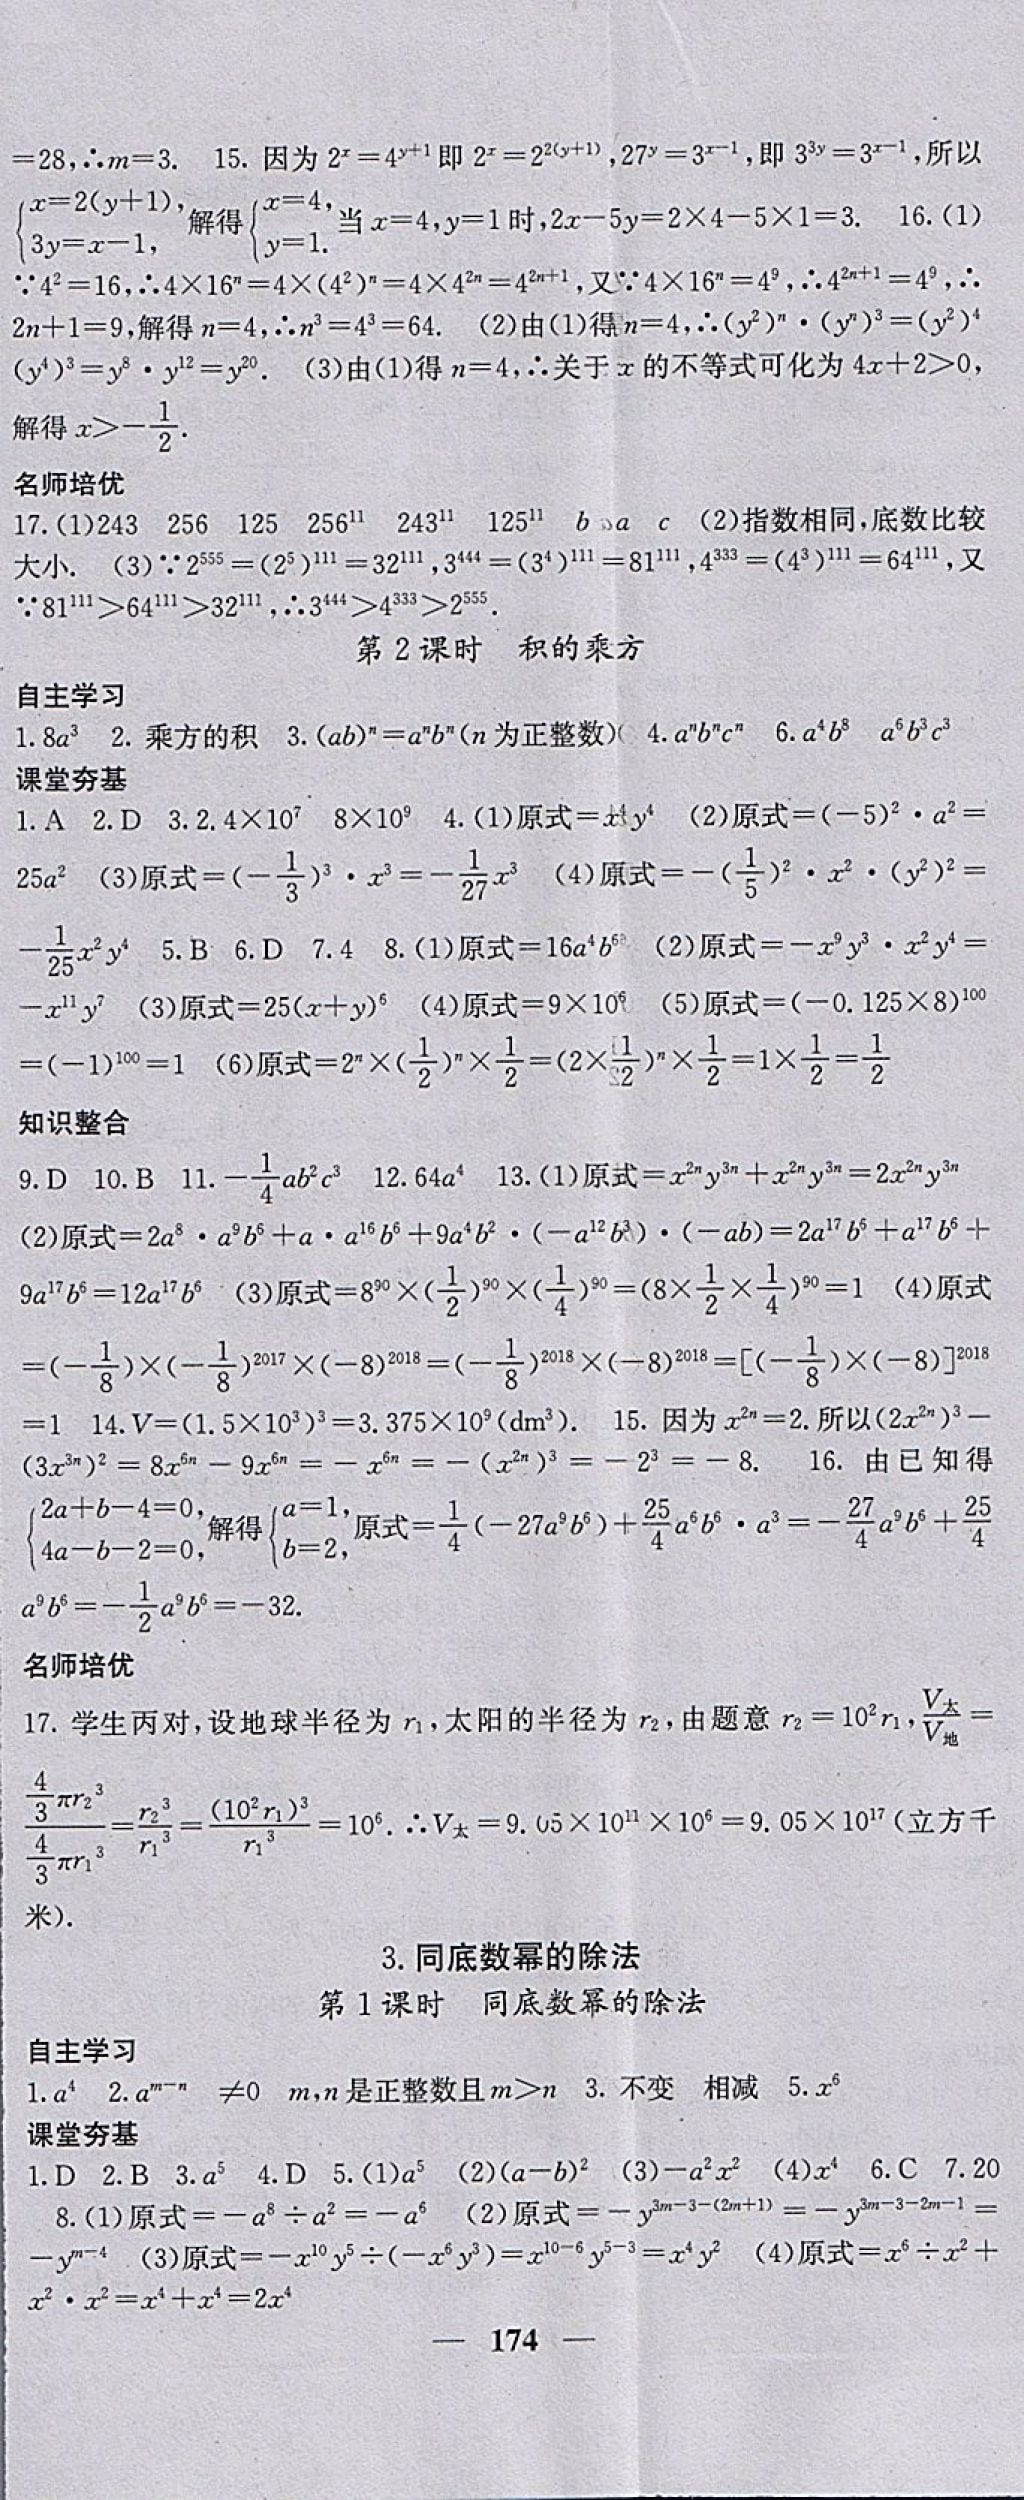 =28,∴m=3. 15. 因为 2ˣ=4ʸ⁺¹即 2ˣ=2²⁽ʸ⁺¹⁾,27ʸ=3ˣ⁻¹,即 3³ʸ=3ˣ⁻¹,所以
{x=2(y+1), 3y=x-1, 解得{x=4, y=1. 当 x=4,y=1时,2x-5y=2×4-5×1=3. 16.(1)
∵4²=16,∴4×16ⁿ=4×(4²)ⁿ=4×4²ⁿ=4²ⁿ⁺¹,又∵4×16ⁿ=4⁹,∴4²ⁿ⁺¹=4⁹,∴
2n+1=9,解得 n=4,∴n³=4³=64. (2)由(1)得 n=4,∴(y²)ⁿ·(yⁿ)³=(y²)⁴
(y⁴)³=y⁸·y¹²=y²⁰. (3)由(1)得 n=4,∴关于 x 的不等式可化为 4x+2>0,
解得 x>-1/2.
名师培优
17.(1)243 256 125 256¹¹ 243¹¹ 125¹¹ b a c (2)指数相同,底数比较
大小. (3)∵2⁵⁵⁵=(2⁵)¹¹¹=32¹¹¹,3⁴⁴⁴=(3⁴)¹¹¹=81¹¹¹,4³³³=(4³)¹¹¹=64¹¹¹,又
∵81¹¹¹>64¹¹¹>32¹¹¹,∴3⁴⁴⁴>4³³³>2⁵⁵⁵.
第 2 课时 积的乘方
自主学习
1.8a³ 2. 乘方的积 3.(ab)ⁿ=aⁿbⁿ(n 为正整数) 4.aⁿbⁿcⁿ 6.a⁴b⁸ a⁶b³c³
课堂夯基
1.A 2.D 3.2.4×10⁷ 8×10⁹ 4.(1)原式=x⁴y⁴ (2)原式=(-5)²·a²=
25a² (3)原式=(-1/3)³·x³=-1/27x³ (4)原式=-(1/5)²·x²·(y²)²=
-1/25x²y⁴ 5.B 6.D 7.4 8.(1)原式=16a⁴b⁶ (2)原式=-x⁹y³·x²y⁴=
-x¹¹y⁷ (3)原式=25(x+y)⁶ (4)原式=9×10⁶ (5)原式=(-0.125×8)¹⁰⁰
=(-1)¹⁰⁰=1 (6)原式=2ⁿ×(1/2)ⁿ×1/2=(2×1/2)ⁿ×1/2=1×1/2=1/2
知识整合
9.D 10.B 11.-1/4ab²c³ 12.64a⁴ 13.(1)原式=x²ⁿy³ⁿ+x²ⁿy³ⁿ=2x²ⁿy³ⁿ
(2)原式=2a⁸·a⁹b⁶+a·a¹⁶b⁶+9a⁴b²·(-a¹²b³)·(-ab)=2a¹⁷b⁶+a¹⁷b⁶+
9a¹⁷b⁶=12a¹⁷b⁶ (3)原式=8⁹⁰×(1/2)⁹⁰×(1/4)⁹⁰=(8×1/2×1/4)⁹⁰=1 (4)原式
=(-1/8)×(-1/8)²⁰¹⁷×(-8)²⁰¹⁸=(-1/8)²⁰¹⁸×(-8)²⁰¹⁸=[(-1/8)×(-8)]²⁰¹⁸
=1 14.V=(1.5×10³)³=3.375×10⁹(dm³). 15. 因为 x²ⁿ=2.所以(2x²ⁿ)³-
(3x³ⁿ)²=8x⁶ⁿ-9x⁶ⁿ=-x⁶ⁿ=-(x²ⁿ)³=-2³=-8. 16. 由已知得
{2a+b-4=0, 4a-b-2=0, 解得{a=1, b=2, 原式=1/4(-27a⁹b⁶)+25/4a⁶b⁶·a³=-27/4a⁹b⁶+25/4
a⁹b⁶=-1/2a⁹b⁶=-32.
名师培优
17. 学生丙对,设地球半径为 r₁,太阳的半径为 r₂,由题意 r₂=10²r₁,V太/V地=
(4/3πr₂³)/(4/3πr₁³)=r₂³/r₁³=(10²r₁)³/r₁³=10⁶.∴V太=9.05×10¹¹×10⁶=9.05×10¹⁷(立方千
米).
3.同底数幂的除法
第 1 课时 同底数幂的除法
自主学习
1.a⁴ 2.aᵐ⁻ⁿ ≠0 m,n 是正整数且 m>n 3. 不变 相减 5.x⁶
课堂夯基
1.D 2.B 3.a⁵ 4.D 5.(1)a⁵ (2)(a-b)² (3)-a²x² (4)x⁴ 6.C 7.20
8.(1)原式=-a⁸÷a²=-a⁶ (2)原式=-y³ᵐ⁻³⁻⁽²ᵐ⁺¹⁾=-y³ᵐ⁻³⁻²ᵐ⁻¹=
-yᵐ⁻⁴ (3)原式=-x¹⁰y⁵÷(-x⁶y³)=x¹⁰⁻⁶y⁵⁻³=x⁴y² (4)原式=x⁶÷x²+
x²·x²=x⁴+x⁴=2x⁴
— 174 —